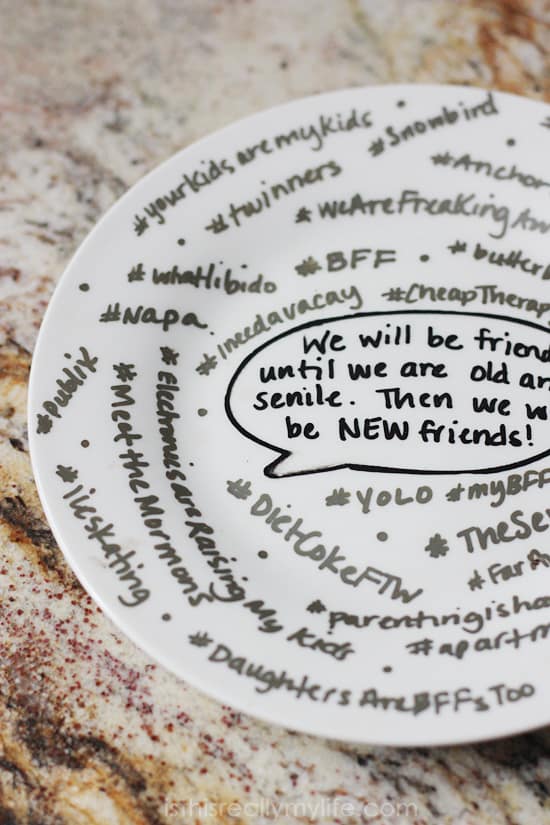 #yourkids are mykids
#Snowbird
#twinners
#Anchor
#WeAreFreakingAw
#whatlibido
#BFF
#butterb
#Napa
#ineedavacay
#CheapTherap
We will be friend
until we are old an
senile. Then we w
be NEW friends!
#publik
#Meet the Mormons
#Electronics are Raising My Kids
#iceskating
#YOLO #myBFF
#DietCokeFTW
#TheSe
#FarA
#parentingisha
#apartm
#DaughtersAreBFFsToo
isthisreallymylife.com